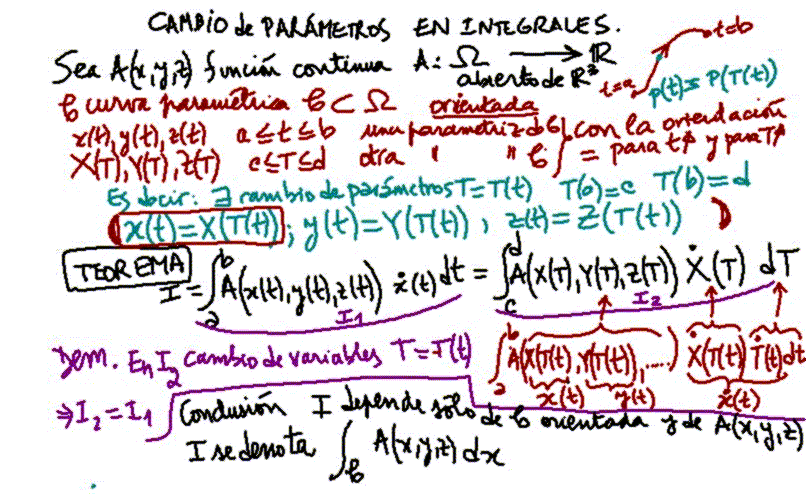 CAMBIO de PARÁMETROS EN INTEGRALES.
Sea A(x,y,z) función continua A: Ω → ℝ
abierto de ℝ³
t=a t=b p(t)=P(T(t))
𝒞 curva paramétrica 𝒞 ⊂ Ω orientada
x(t), y(t), z(t) a ≤ t ≤ b una parametriz de 𝒞 } con la orientación
X(T), Y(T), Z(T) c ≤ T ≤ d otra " " 𝒞 } = para t↑ y para T↑
Es decir: ∃ cambio de parámetros T=T(t) T(a)=c T(b)=d
(x(t)=X(T(t)); y(t)=Y(T(t)), z(t)=Z(T(t)))
TEOREMA
I = ∫_a^b A(x(t),y(t),z(t)) ẋ(t) dt = ∫_c^d A(X(T),Y(T),Z(T)) Ẋ(T) dT
I₁ I₂
Dem. En I₂ cambio de variables T=T(t) ∫_a^b A(X(T(t)),Y(T(t)),....) Ẋ(T(t)) Ṫ(t) dt
x(t) y(t) ẋ(t)
⇒ I₂ = I₁
Conclusión I depende sólo de 𝒞 orientada y de A(x,y,z)
I se denota ∫_𝒞 A(x,y,z) dx